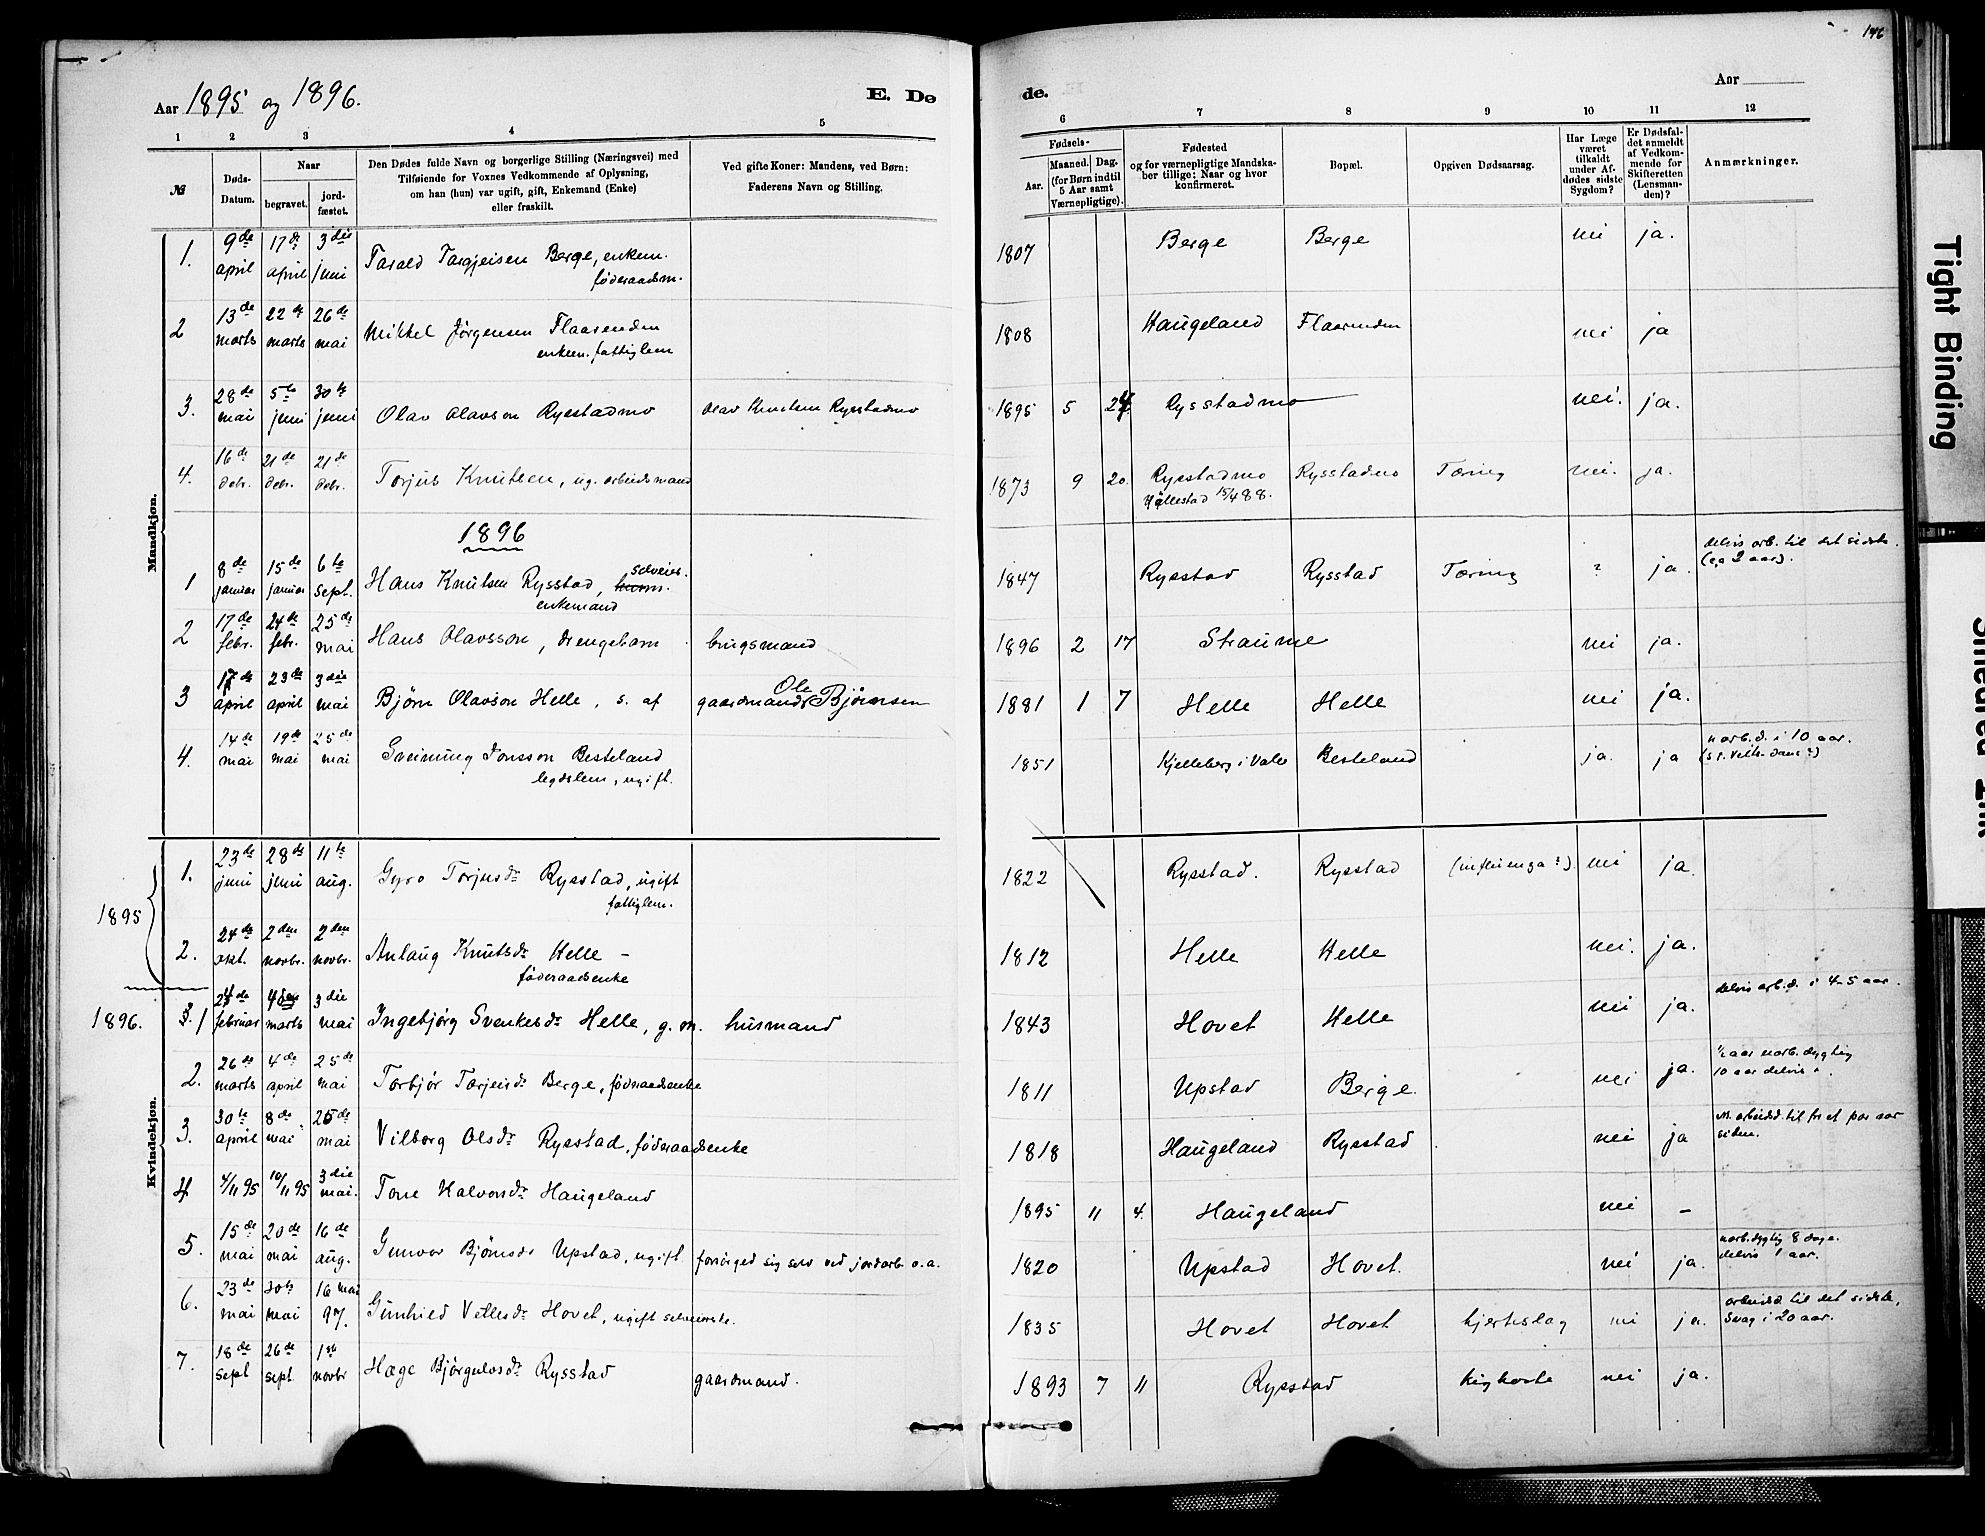 146
Aar 1895 og 1896.
E. De
de.
Aar
1 2 3 4 5
6 7 8 9 10 11 12
№
Døds-Datum.
Naar
begravet.
jord-fæstet.
Den Dødes fulde Navn og borgerlige Stilling (Næringsvei) med
Tilføiende for Voxnes Vedkommende af Oplysning,
om han (hun) var ugift, gift, Enkemand (Enke)
eller fraskilt.
Ved gifte Koner: Mandens, ved Børn:
Faderens Navn og Stilling.
Fødsels-
Aar.
Maaned. Dag.
(for Børn indtil
5 Aar samt
Værnepligtige).
Fødested
og for værnepligtige Mandska-
ber tillige: Naar og hvor
konfirmeret.
Bopæl.
Opgiven Dødsaarsag.
Har Læge
været
tilkaldt
under Af-
dødes sidste
Sygdom?
Er Dødsfal-
det anmeldt
af Vedkom-
mende for
Skifteretten
(Lensman-
den)?
Anmærkninger.
Mandkjøn.
1. 9de april 17de april 3die juni Tarald Targjeisen Berge, enkem. føderaadsm. 1807 Berge Berge nei ja.
2 13de marts 22de marts 26de mai Mikkel Jørgensen Flaarenden enkem. fattiglem 1808 Haugeland Flaarenden nei ja
3. 28de mai 5te juni 30te juni Olav Olavson Rysstadmo Olav Knutsen Rysstadmo 1895 5 24 Rysstadmo nei. ja.
4. 16de debr. 21de debr. 21de debr. Torjus Knutsen, ug. arbeidsmand 1873 9 20. Rysstadmo Hyllestad 15/4 88. Rysstadmo Tæring nei. ja.
1896
1 8de januar 15de januar 6te sept. Hans Knutsen Rysstad, selveier. enkemand 1847 Rysstad Rysstad Tæring ? ja. delvis arb. til det sidste. (ca 2 aar).
2 17de febr. 24de febr. 25de mai Hans Olavsson, drengebarn brugsmand 1896 2 17 Straume nei ja.
3 17de april 23de april 3die mai Bjørn Olavson Helle, s. af gaardmand Ole Bjørnsen 1881 1 7 Helle Helle nei ja.
4. 14de mai 19de mai 25de mai Sveinung Jonsson Besteland legdslem, ugift. 1851 Kjelleberg i Valle Besteland ja. ja uarb.d. i 10 aar. (st. Veits-dans?)
Kvindekjøn.
1895
1. 23de juni 28de juni 11te aug. Gyro Torjusdr Rysstad, ugift fattiglem. 1822 Rysstad. Rysstad (influenza?). nei ja.
2. 24de okt. 2den novbr. 2den novbr. Anlaug Knutsdr Helle – føderaadsenke 1812 Helle Helle nei. ja.
1896.
1 24de februar 4de marts 3die mai Ingebjørg Svenkesdr Helle, g. m. husmand 1843 Hovet Helle nei ja. delvis arb.d. i 4-5 aar.
2. 26de marts 4de april 25de mai Torbjør Tarjeisdr Berge, føderaadsenke 1811 Upstad Berge. nei ja. ½ aar uarb.dygtig 10 aar delvis
3. 30te april 8de mai 25de mai Vilborg Olsdr Rysstad, føderaadsenke 1818 Haugeland Rysstad nei ja arbeidsd. til for et par aar siden.
4 4/11 95 10/11 95 3die mai. Tone Halvorsdr Haugeland 1895 11 4. Haugeland nei –
5. 15de mai 20de mai 16de aug. Gunvor Bjørnsdr Upstad, ugift forsørged sig selv ved jordarb. o.a. 1820 Upstad Hovet. nei ja. uarb.dygtig 8 dage. delvis 1 aar.
6. 23de mai 30te mai 16 mai 97. Gunhild Vetlesdr Hovet, ugift selveierske. 1835 Hovet Hovet hjerteslag nei ja. arbeidsd til det sidste, svag i 20 aar.
7. 18de sept 26de sept 1ste novbr Hæge Bjørgulvsdr Rysstad gaardmand. 1893 7 11 Rysstad kighoste nei ja.
Tight Binding